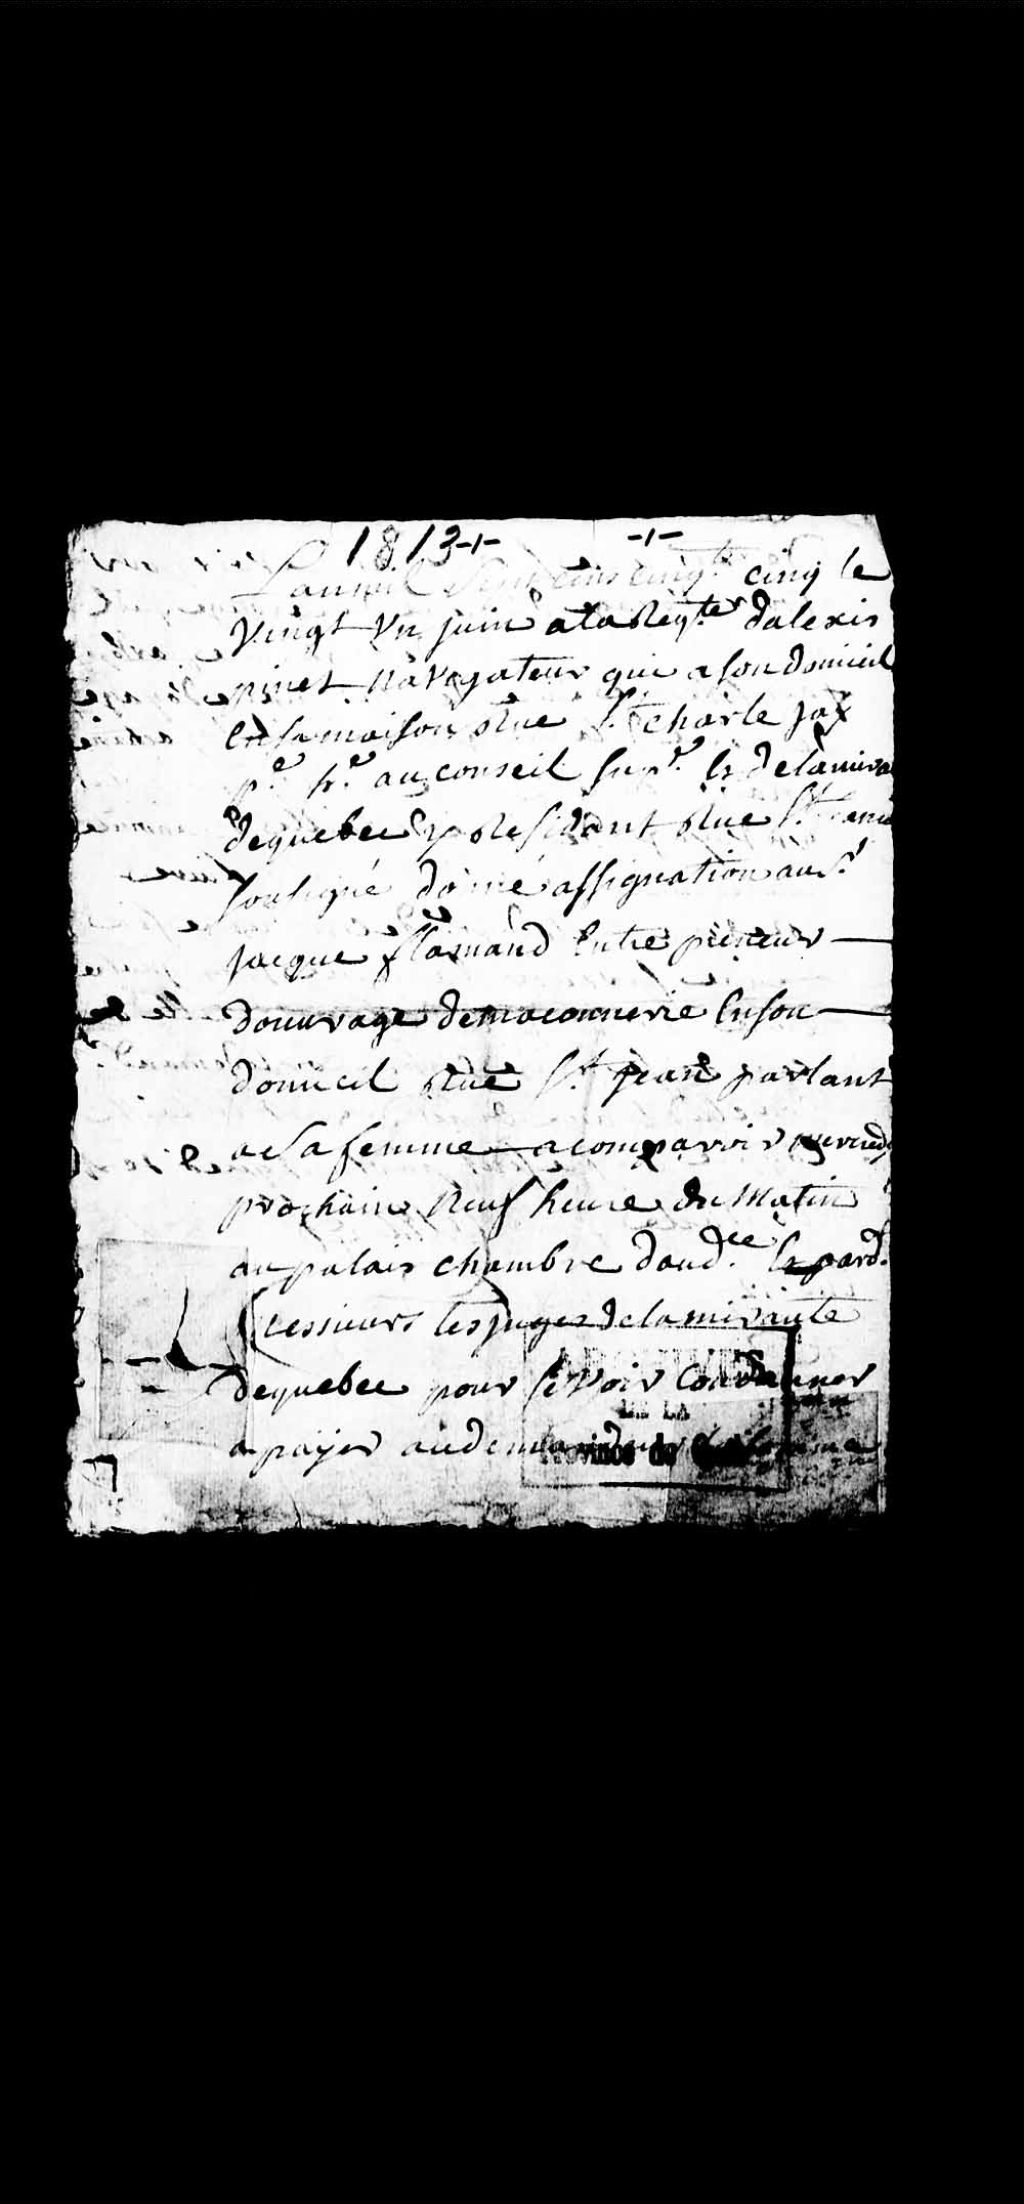 1813-+- -+-
Lan mil Sept cens cinqte cinq le
Vingt Un juin a la Reqte dalexis
pinet navagateur qui a son domicil
En sa maison Rue St charle jay
pe hr au conseil supr Et de lamira
de quebec y Residant Rue St
sousigné donné assignation au Sr
jacque flamand Entre preneur
douvrage de maconnerie En son
domicil Rue St jean parlant
a sa femme a comparoir
prochain neuf heure du matin
au palais chambre daudce Et pard
Les sieurs les juges de lamirauté
de quebec pour se voir Condamner
a payer au demandeur la somme
ARCHIVES
DE LA
Province de Québec